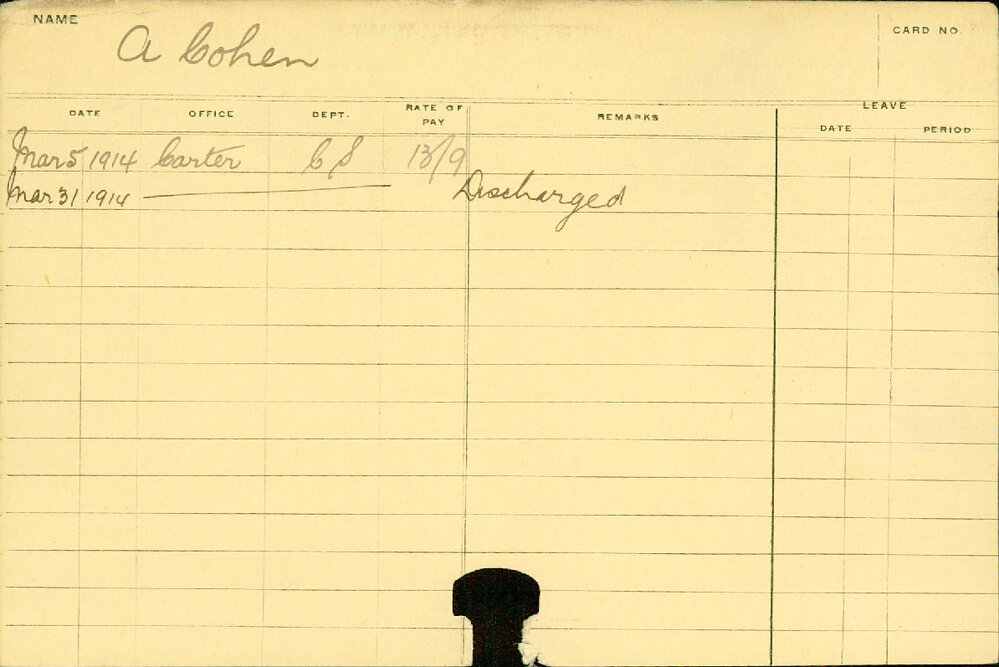 NAME
A Cohen
CARD NO.
DATE OFFICE DEPT. RATE OF PAY REMARKS LEAVE
DATE PERIOD
Mar 5 1914 Carter C S 13/9
Mar 31 1914 Discharged